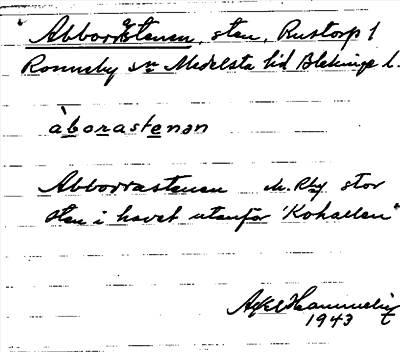 "Abborrstenen, sten, Rustorp 1
Ronneby sn Medelsta hd Blekinge l.
àborastenən
Abborrastenen sten
sten i havet utanför 'Kohallen"
Axel
1943